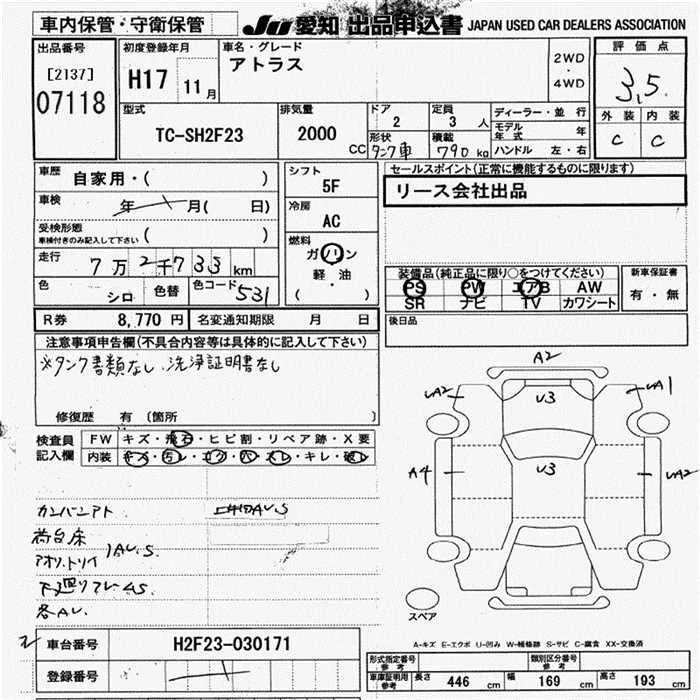 車内保管・守衛保管
JU 愛知 出品申込書 JAPAN USED CAR DEALERS ASSOCIATION
出品番号
[2137]
07118
初度登録年月
H17 11月
車名・グレード
アトラス
2WD
・
4WD
評価点
3.5
外装 内装
C C
型式
TC-SH2F23
排気量
2000
CC
ドア
2
定員
3 人
形状
タンク車
積載
790 kg
ディーラー・並行
モデル年式 年
ハンドル 左・右
車歴
自家用・( )
車検
年 月( 日)
受検形態
車検付きのみ記入して下さい ( )
走行
7万2千733km
色
シロ
色替
色コード
531
シフト
5F
冷房
AC
燃料
ガソリン
軽・油
( )
セールスポイント(正常に機能するものに限ります)
リース会社出品
装備品(純正品に限り○をつけてください)
PS PW エアB AW
SR ナビ TV カワシート
新車保証書
有・無
R券 8,770円 名変通知期限 月 日
後日品
注意事項申告欄(不具合内容等は具体的に記入して下さい)
※タンク書類なし、洗浄証明書なし
修復歴 有 〔箇所 〕
検査員
記入欄
FW キズ・飛石・ヒビ割・リペア跡・X要
内装 キズ・汚レ・コゲ・穴・スレ・キレ・破レ
荷台床
下廻りフレームS
A2
UA2 U3 UA1
A4 U3 UA2
スペア
A-キズ E-エクボ U-凹み W-補修跡 S-サビ C-腐食 XX-交換済
車台番号 H2F23-030171
登録番号
形式指定番号 参考 類別区分番号 参考
車庫証明用 参考 長さ 446 cm 幅 169 cm 高さ 193 cm